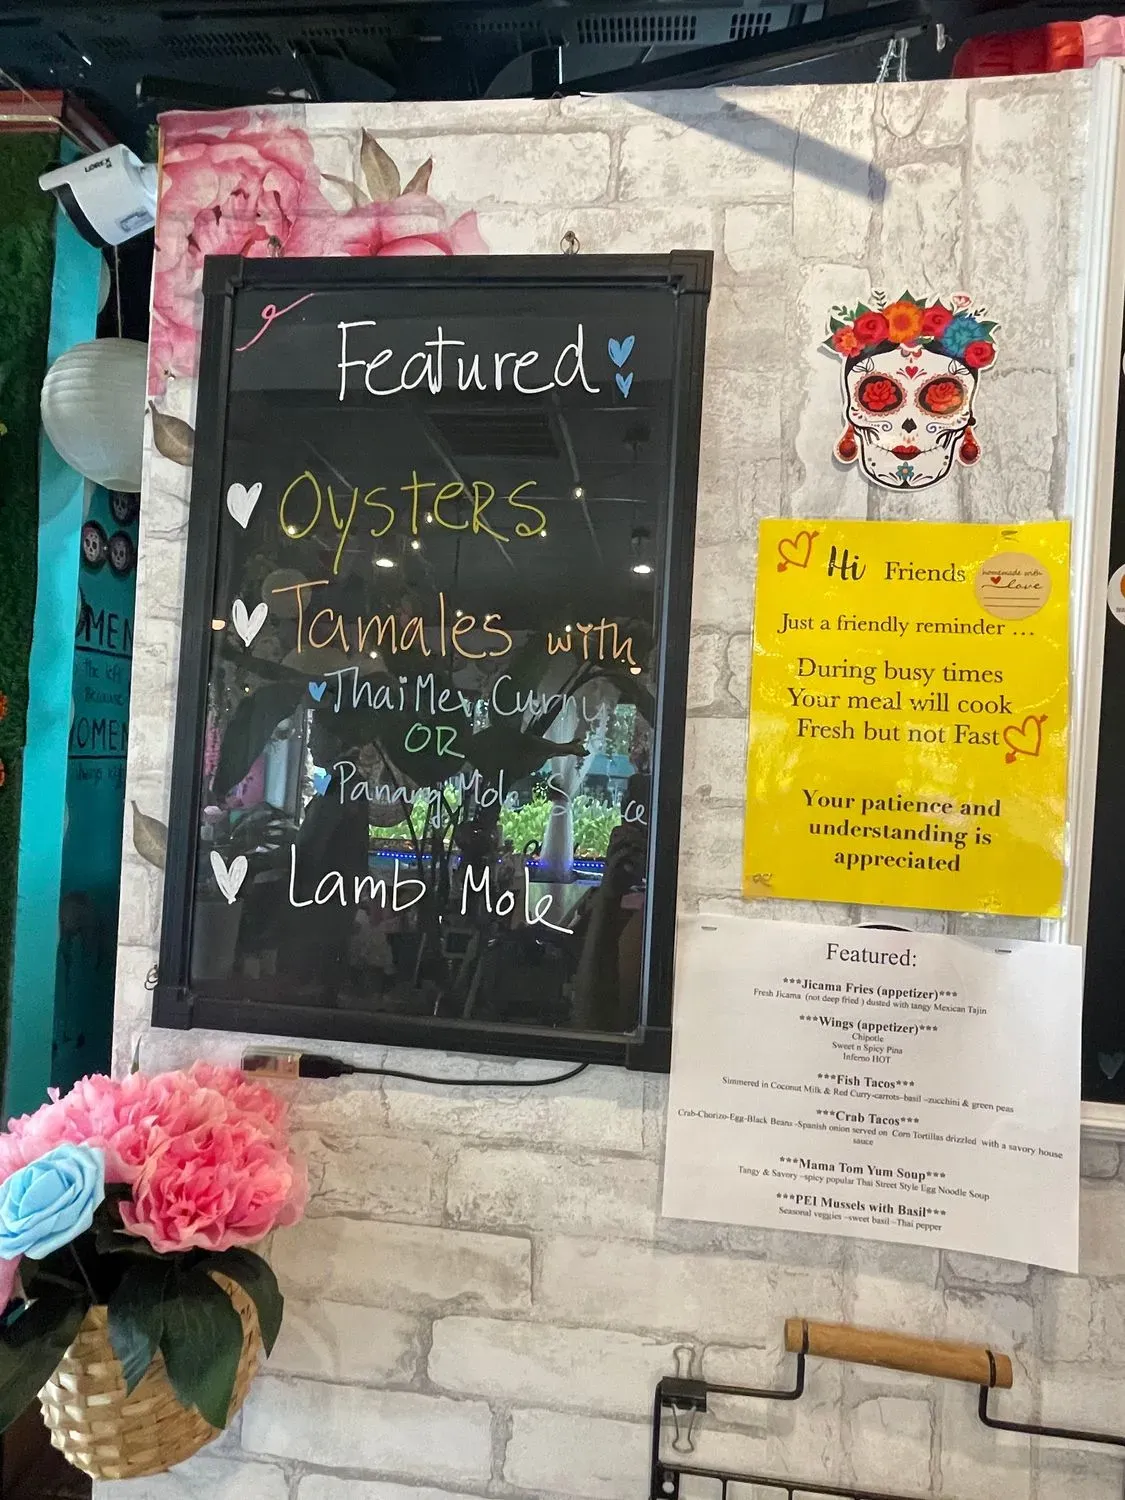 LOREX
Featured
Oysters
Tamales with
Thai Mex Curry
OR
Panang Mole Sauce
Lamb Mole
Hi Friends
homemade with
love
Just a friendly reminder ...
During busy times
Your meal will cook
Fresh but not Fast
Your patience and
understanding is
appreciated
Featured:
***Jicama Fries (appetizer)***
Fresh Jicama (not deep fried ) dusted with tangy Mexican Tajin
***Wings (appetizer)***
Chipotle
Sweet n Spicy Pina
Inferno HOT
***Fish Tacos***
Simmered in Coconut Milk & Red Curry-carrots-basil –zucchini & green peas
***Crab Tacos***
Crab-Chorizo-Egg-Black Beans -Spanish onion served on Corn Tortillas drizzled with a savory house
sauce
***Mama Tom Yum Soup***
Tangy & Savory –spicy popular Thai Street Style Egg Noodle Soup
***PEI Mussels with Basil***
Seasonal veggies –sweet basil –Thai pepper
OMEN